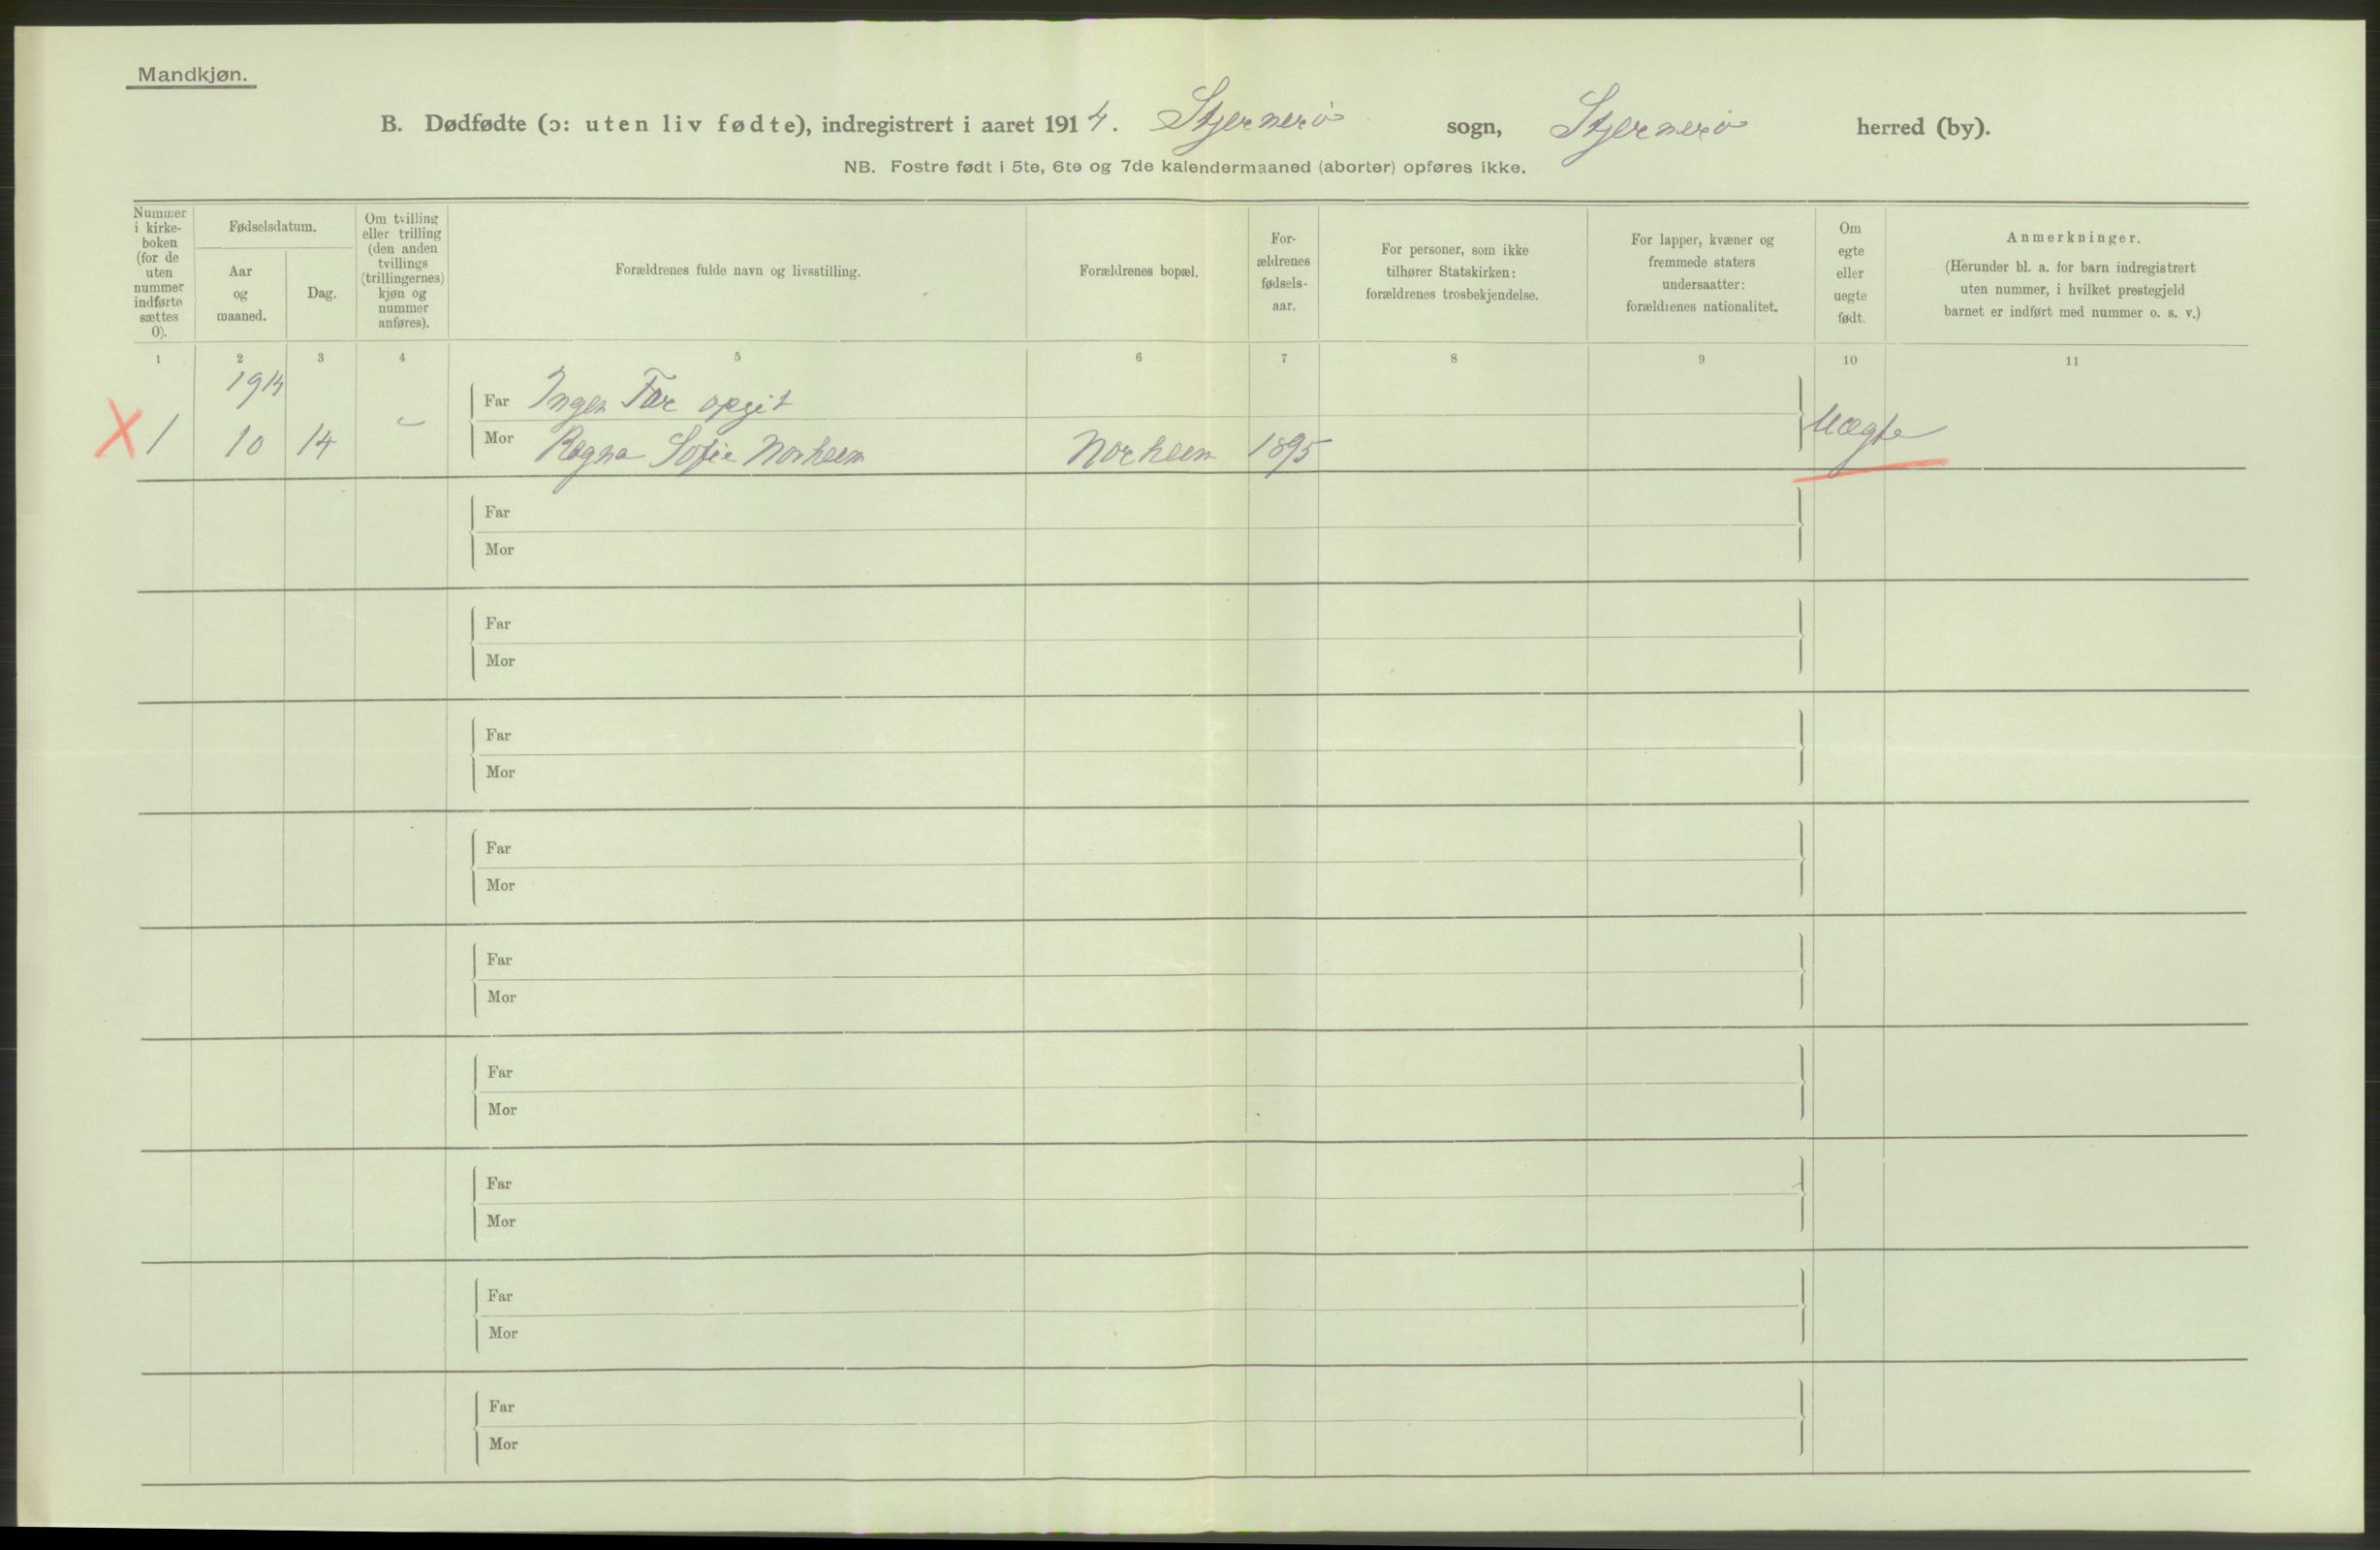 Mandkjøn.
B. Dødfødte (ɔ: uten liv fødte), indregistrert i aaret 1914. Stjernerø sogn, Stjernerø herred (by).
NB. Fostre født i 5te, 6te og 7de kalendermaaned (aborter) opføres ikke.
Nummer
i kirke-
boken
(for de
uten
nummer
indførte
sættes
0).
Fødselsdatum.
Aar
og
maaned.
Dag.
Om tvilling
eller trilling
(den anden
tvillings
(trillingernes)
kjøn og
nummer
anføres).
Forældrenes fulde navn og livsstilling.
Forældrenes bopæl.
For-
ældrenes
fødsels-
aar.
For personer, som ikke
tilhører Statskirken:
forældrenes trosbekjendelse.
For lapper, kvæner og
fremmede staters
undersaatter:
forældrenes nationalitet.
Om
egte
eller
uegte
født.
Anmerkninger.
(Herunder bl. a. for barn indregistrert
uten nummer, i hvilket prestegjeld
barnet er indført med nummer o. s. v.)
1 2 3 4 5 6 7 8 9 10 11
1914
Far Ingen Far opgit
X 1 10 14 - Mor Ragna Sofie Norheim Norheim 1895 Uægte
Far
Mor
Far
Mor
Far
Mor
Far
Mor
Far
Mor
Far
Mor
Far
Mor
Far
Mor
Far
Mor